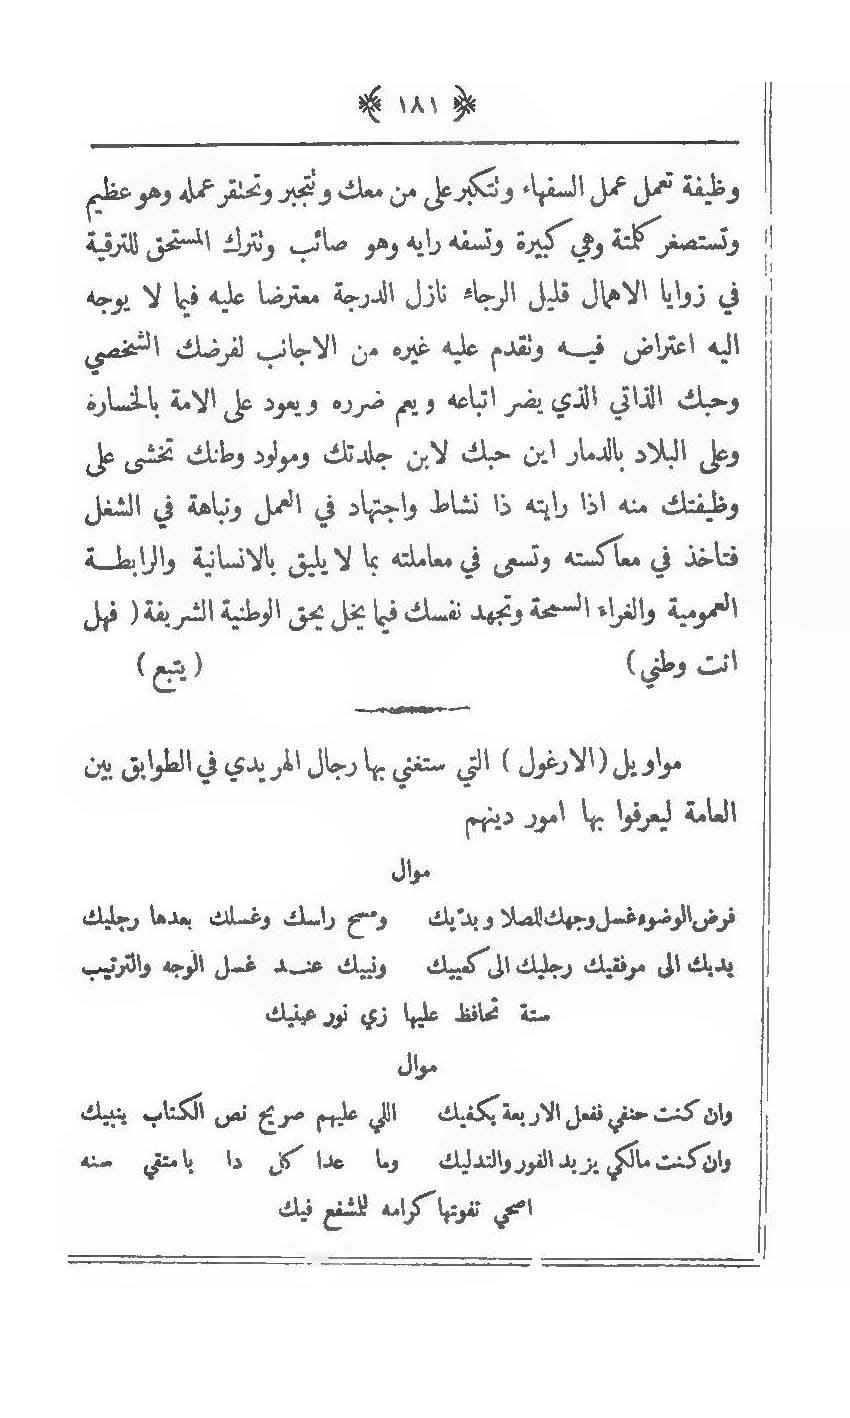 ﴿ ١٨١ ﴾
وظيفة تعمل عمل السفهاء وتتكبر على من معك وتتجبر وتحتقر عمله وهو عظيم
وتستصغر كلمتة وهي كبيرة وتسفه رايه وهو صائب وتترك المستحق للترقية
في زوايا الاهمال قليل الرجاء نازل الدرجة معترضا عليه فيما لا يوجه
اليه اعتراض فيه وتقدم عليه غيره من الاجانب لغرضك الشخصي
وحبك الذاتي الذي يضر اتباعه ويعم ضرره ويعود على الامة بالخسارة
وعلى البلاد بالدمار اين حبك لابن جلدتك ومولود وطنك تخشى على
وظيفتك منه اذا رايته ذا نشاط واجتهاد في العمل ونباهة في الشغل
فتاخذ في معاكسته وتسعى في معاملته بما لا يليق بالانسانية والرابطة
العمومية والغراء السمحة وتجهد نفسك فيما يخل بحق الوطنية الشريفة ( فهل
انت وطني ) ( يتبع )
مواويل ( الارغول ) التي ستغني بها رجال الهريدي في الطوابق بين
العامة ليعرفوا بها امور دينهم
موال
فرض الوضوء غسل وجهك للصلا وبدّيك ومسح راسك وغسلك بعدها رجليك
يديك الى مرفقيك رجليك الى كعبيك ونيبك عند غسل الوجه والترتيب
ستة تحافظ عليها زي نور عينيك
موال
وان كنت حنفي ففعل الاربعة يكفيك اللي عليهم صريح نص الكتاب ينبيك
وان كنت مالكي يزيد الفور والتدليك وما عدا كل دا يا متقي سنه
اصحي تفوتها كرامه للمشفع فيك